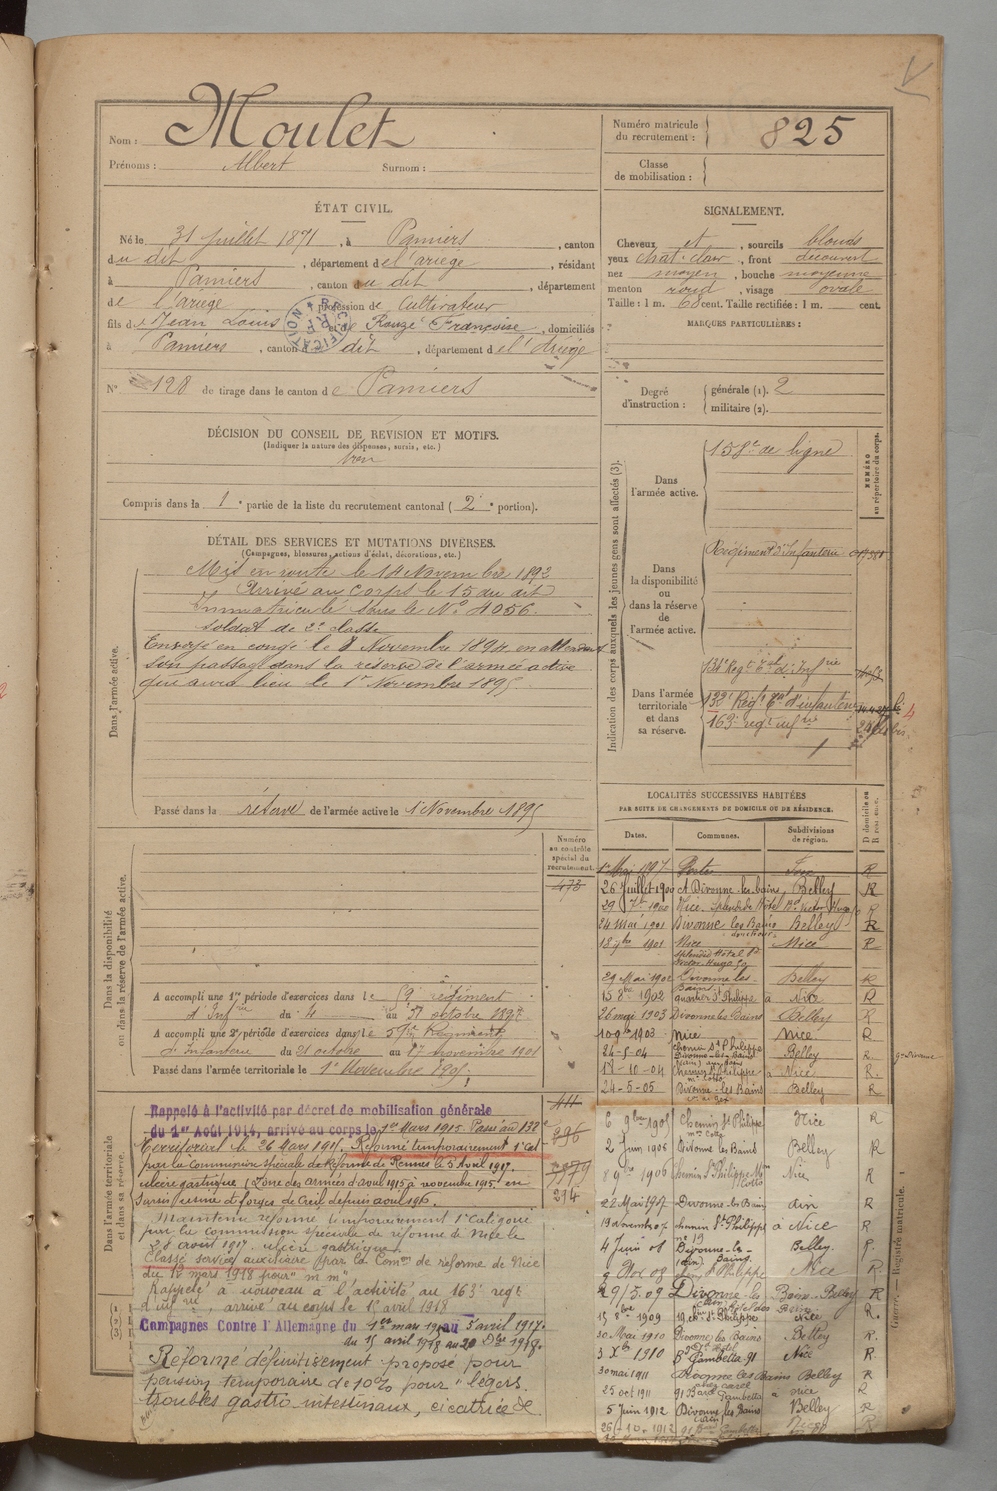 Nom : Moulet
Prénoms : Albert Surnom :
Numéro matricule du recrutement : 825
Classe de mobilisation :
ÉTAT CIVIL.
Né le 31 juillet 1871, à Pamiers, canton
du dit, département de l'ariège, résidant
à Pamiers, canton du dit, département
de l'ariège, profession de cultivateur
fils de Jean Louis et de Rouzé Françoise, domiciliés
à Pamiers, canton dit, département de l'Ariège
RECTIFICATION
R F
N° 128 de tirage dans le canton de Pamiers
DÉCISION DU CONSEIL DE RÉVISION ET MOTIFS.
(Indiquer la nature des dispenses, sursis, etc.)
bon
Compris dans la 1e partie de la liste du recrutement cantonal (2e portion).
SIGNALEMENT.
Cheveux et, sourcils blonds
yeux chat. clair, front découvert
nez moyen, bouche moyenne
menton rond, visage ovale
Taille : 1 m. 68 cent. Taille rectifiée : 1 m. cent.
MARQUES PARTICULIÈRES :
Degré d'instruction : générale (1). 2
militaire (2).
DÉTAIL DES SERVICES ET MUTATIONS DIVERSES.
(Campagnes, blessures, actions d'éclat, décorations, etc.)
Dans l'armée active.
Mis en route le 14 Novembre 1892
Arrivé au corps le 15 du dit
Immatriculé sous le N° 4056.
soldat de 2e classe
Envoyé en congé le 8 Novembre 1894 en attendant
son passage dans la réserve de l'armée active
qui aura lieu le 1er Novembre 1895.
Passé dans la réserve de l'armée active le 1 Novembre 1895
Indication des corps auxquels les jeunes gens sont affectés (3).
NUMÉRO au répertoire du corps.
Dans l'armée active.
158e de ligne
Dans la disponibilité ou dans la réserve de l'armée active.
Régiment d'Infanterie
Dans l'armée territoriale et dans sa réserve.
134e Regt Tal d'Infrie
132e Regt Tal d'infanterie
163e regt infrie
Dans la disponibilité ou dans la réserve de l'armée active.
Numéro au contrôle spécial du recrutement.
473
A accompli une 1re période d'exercices dans le 59e régiment
d'Infrie du 4 au 31 octobre 1897
A accompli une 2e période d'exercices dans le 59e Régiment
d'Infanterie du 21 octobre au 17 novembre 1901
Passé dans l'armée territoriale le 1er Novembre 1905
Dans l'armée territoriale et dans sa réserve.
411
Rappelé à l'activité par décret de mobilisation générale
du 1er Août 1914, arrivé au corps le 1er Mars 1915. Passé au 132e
Territorial le 26 Mars 1915. Réformé temporairement 1e Cat
par la Commission spéciale de Réforme de Rennes le 5 Avril 1917.
ulcère gastrique (Zône des armées d'avril 1915 à novembre 1915 en
Sursis usine et forges de Creil depuis aout 1916.
214
Maintenu réformé temporairement 1e Catégorie
par la commission spéciale de réforme de Nice le
28 août 1917. ulcère gastrique.
Classé service auxiliaire par la Comm de réforme de Nice
du 12 mars 1918 pour "m m"
Rappelé à nouveau à l'activité au 163e regt
d'infrie, arrivé au corps le 15 avril 1918
Campagnes Contre l'Allemagne du 1er mars 1915 au 5 avril 1917.
du 15 avril 1918 au 20 Dbre 1918.
Réformé définitivement proposé pour
pension temporaire de 10% pour "légers
troubles gastro intestinaux, cicatrice de
LOCALITÉS SUCCESSIVES HABITÉES
PAR SUITE DE CHANGEMENTS DE DOMICILE OU DE RÉSIDENCE.
Dates. Communes. Subdivisions de région. D domicile ou R résidence.
1er Mai 1897 Foix R
26 Juillet 1900 A Divonne-les-bains, Belley R
29 7bre 1900 Nice, Splendide Hôtel Bd Victor Hugo 50 R
24 mai 1901 Divonne les Bains Belley R
18 9bre 1901 Nice Splendid Hôtel Bd Victor Hugo 50 Nice R
29 Mai 1902 Divonne les Bains Belley R
15 8bre 1902 quartier St Philippe à Nice R
26 mai 1903 Divonne les Bains Belley R
10 9bre 1903 Nice chemin St Philippe Nice. R
24-5-04 Divonne-les-Bains Belley R.
18-10-04 Chemin St Philippe à Nice R.
24-5-05 Divonne-les Bains Belley R
6 9bre 1905 Chemin St Philippe mon Cotto Nice R
2 juin 1906 Divonne les Bains Belley R
8 9bre 1906 Chemin St Philippe Mon Cotto Nice R
22 Mai 1907 Divonne-les-Bains ain R
19 novembre 07 chemin St Philippe à Nice R
4 Juin 08 Divonne-les-Bains. Belley. R.
9 Nov 08 St Philippe Nice R
29/5.09 Divonne-les-Bains-Belley R
15 8bre 1909 St Philippe Nice R.
20 Mai 1910 Divonne les Bains Belley R.
3 Xbre 1910 Bd Gambetta. 91 Nice R.
30 mai 1911 Divonne les Bains Belley R
25 oct 1911 91 Bard Gambetta à Nice R
5 Juin 1912 Divonne les Bains (ain) Belley R
26-10-1912 91 Bard Gambetta Nice R
Guerre. — Registre matricule. 1